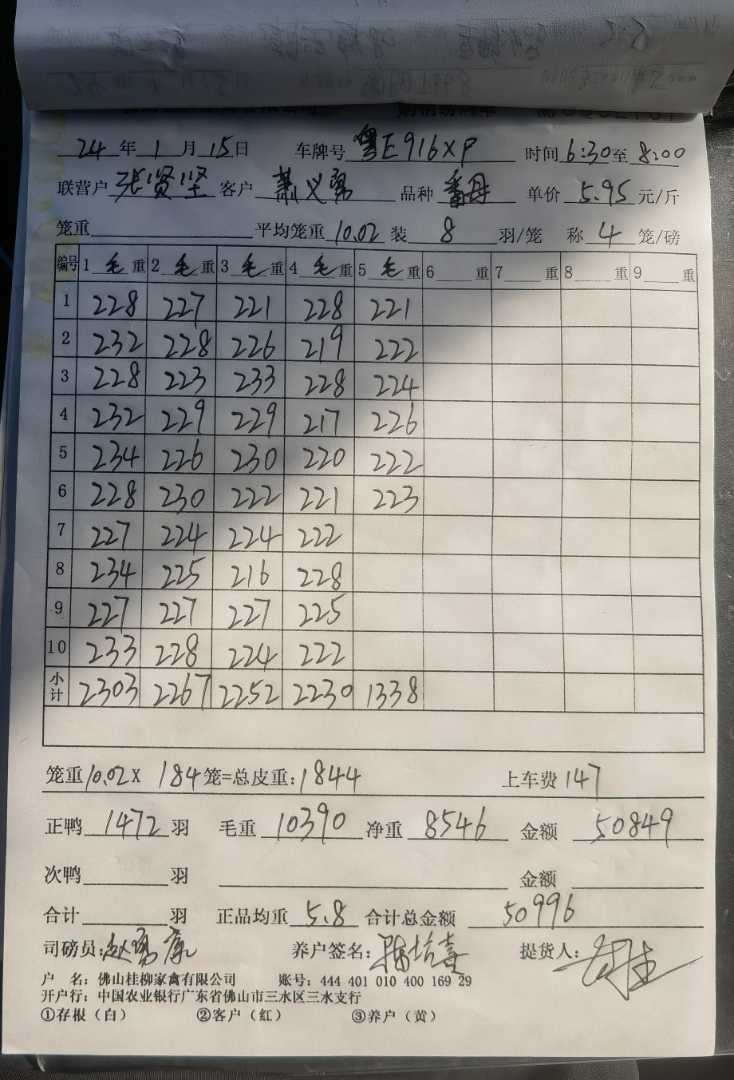 24 年 1 月 15 日 车牌号 粤E916XP 时间 6:30 至 8:00
联营户 张贤坚 客户 萧义勇 品种 番母 单价 5.95 元/斤
笼重 平均笼重 10.02 装 8 羽/笼 称 4 笼/磅
编号 1 毛 重 2 毛 重 3 毛 重 4 毛 重 5 毛 重 6 重 7 重 8 重 9 重
1 228 227 221 228 221
2 232 228 226 219 222
3 228 223 233 228 224
4 232 229 229 217 226
5 234 226 230 220 222
6 228 230 222 221 223
7 227 224 224 222
8 234 225 216 228
9 227 227 227 225
10 233 228 224 222
小计 2303 2267 2252 2230 1338
笼重 10.02 X 184 笼=总皮重: 1844 上车费 147
正鸭 1472 羽 毛重 10390 净重 8546 金额 50849
次鸭 羽 金额
合计 羽 正品均重 5.8 合计总金额 50996
司磅员: 养户签名: 提货人:
户 名: 佛山桂柳家禽有限公司 账号: 444 401 010 400 169 29
开户行: 中国农业银行广东省佛山市三水区三水支行
①存根（白） ②客户（红） ③养户（黄）